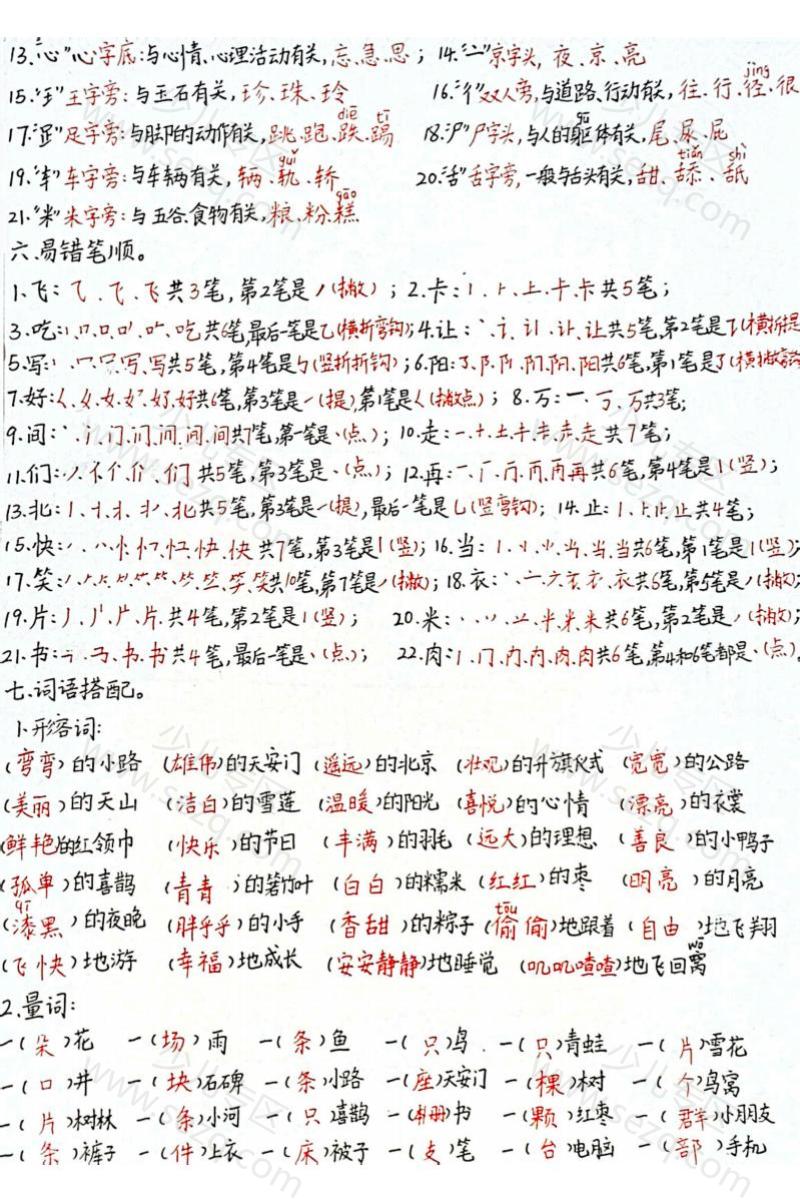 13."心"心字底:与心情、心理活动有关,忘、急、思; 14."亠"京字头,夜、京、亮
jìng
15."王"王字旁:与玉石有关,珍、珠、玲 16."彳"双人旁,与道路、行动有关,往、行、径、很
diē tī qū
17."𧾷"足字旁:与脚的动作有关,跳、跑、跌、踢 18."尸"尸字头,与人的躯体有关,尾、尿、屁
guǐ tiǎn shì
19."车"车字旁:与车辆有关,辆、轨、轿 20."舌"舌字旁,一般与舌头有关,甜、舔、舐
gāo
21."米"米字旁:与五谷、食物有关,粮、粉、糕
六、易错笔顺。
1.飞:⺄、飞、飞共3笔,第2笔是丿(撇); 2.卡:丨、⺊、上、卡、卡共5笔;
3.吃:丨、口、口、吃共6笔,最后一笔是乙(横折弯钩);4.让:丶、讠、让共5笔,第2笔是㇊(横折提
5.写:写、写共5笔,第4笔是㇉(竖折折钩);6.阳:阝、阳、阳共6笔,第1笔是㇌(横撇弯钩
7.好:𡿨、女、女、好共6笔,第3笔是㇀(提)第1笔是𡿨(撇点); 8.万:一、丂、万共3笔;
9.间:丶、门、间、间共7笔,第一笔是丶(点); 10.走:一、十、土、走共7笔;
11.们:丿、亻、们共5笔,第3笔是丶(点); 12.再:一、冂、再共6笔,第4笔是丨(竖);
13.北:丨、北共5笔,第3笔是㇀(提),最后一笔是乚(竖弯钩); 14.止:丨、⺊、止共4笔;
15.快:丶、忄、快共7笔,第3笔是丨(竖);16.当:丨、当、当共6笔,第1笔是丨(竖);
17.笑:丿、笑共10笔,第7笔是丿(撇);18.衣:丶、亠、衣共6笔,第5笔是丿(撇);
19.片:丿、片共4笔,第2笔是丨(竖); 20.米:丶、米共6笔,第2笔是丿(撇);
21.书:㇕、书、书共4笔,最后一笔是丶(点); 22.肉:丨、冂、内、肉、肉共6笔,第4和6笔都是丶(点)。
七、词语搭配。
1.形容词:
(弯弯)的小路 (雄伟)的天安门 (遥远)的北京 (壮观)的升旗仪式 (宽宽)的公路
(美丽)的天山 (洁白)的雪莲 (温暖)的阳光 (喜悦)的心情 (漂亮)的衣裳
(鲜艳)的红领巾 (快乐)的节日 (丰满)的羽毛 (远大)的理想 (善良)的小鸭子
(孤单)的喜鹊 (青青)的箬竹叶 (白白)的糯米 (红红)的枣 (明亮)的月亮
qī tōu
(漆黑)的夜晚 (胖乎乎)的小手 (香甜)的粽子 (偷偷)地跟着 (自由)地飞翔
wō
(飞快)地游 (幸福)地成长 (安安静静)地睡觉 (叽叽喳喳)地飞回窝
2.量词:
一(朵)花 一(场)雨 一(条)鱼 一(只)鸟 一(只)青蛙 一(片)雪花
一(口)井 一(块)石碑 一(条)小路 一(座)天安门 一(棵)树 一(个)鸟窝
一(片)树林 一(条)小河 一(只)喜鹊 一(本册)书 一(颗)红枣 一(群)小朋友
一(条)裤子 一(件)上衣 一(床)被子 一(支)笔 一(台)电脑 一(部)手机